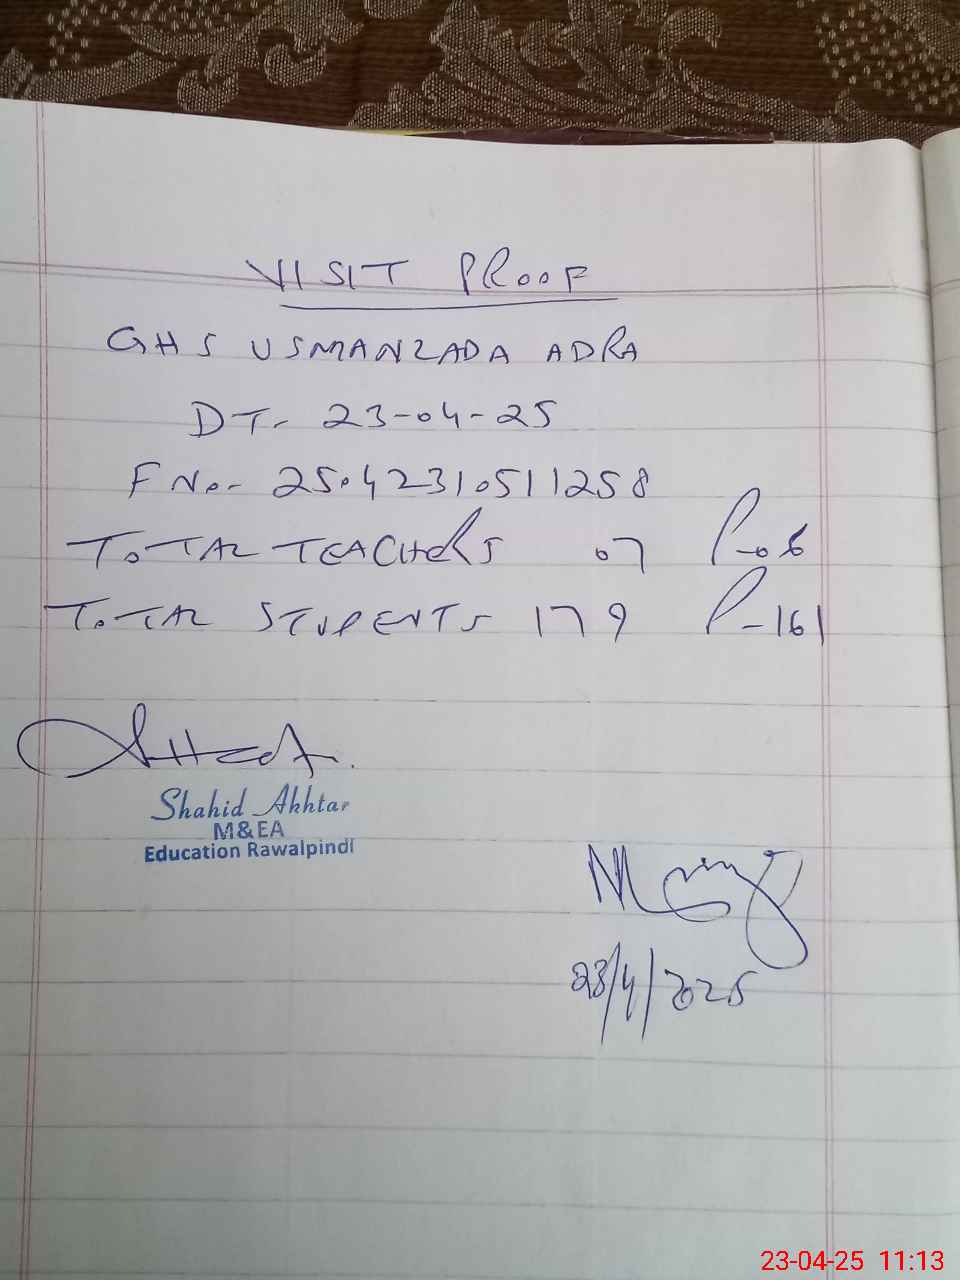 VISIT PROOF
GHS USMANZADA ADRA
DT- 23-04-25
F No.- 25042310511258
TOTAL TEACHERS 07 P-06
TOTAL STUDENTS 179 P-161
Shahid Akhtar
M&EA
Education Rawalpindi
23/4/2025
23-04-25 11:13